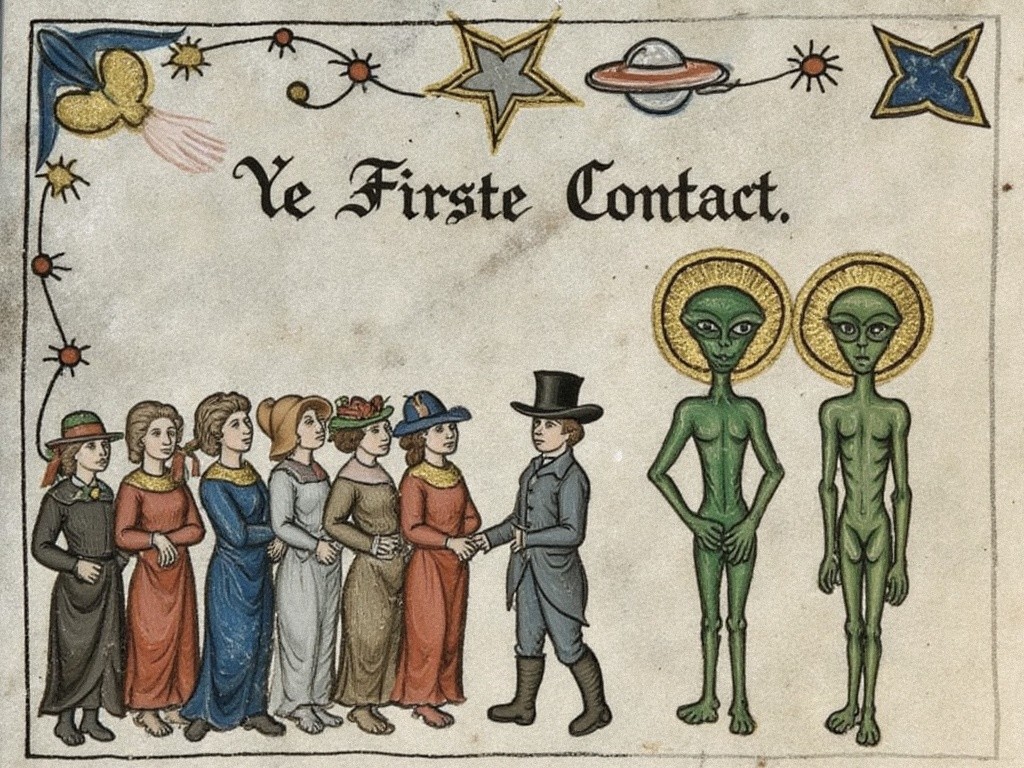 Ye Firste Contact.